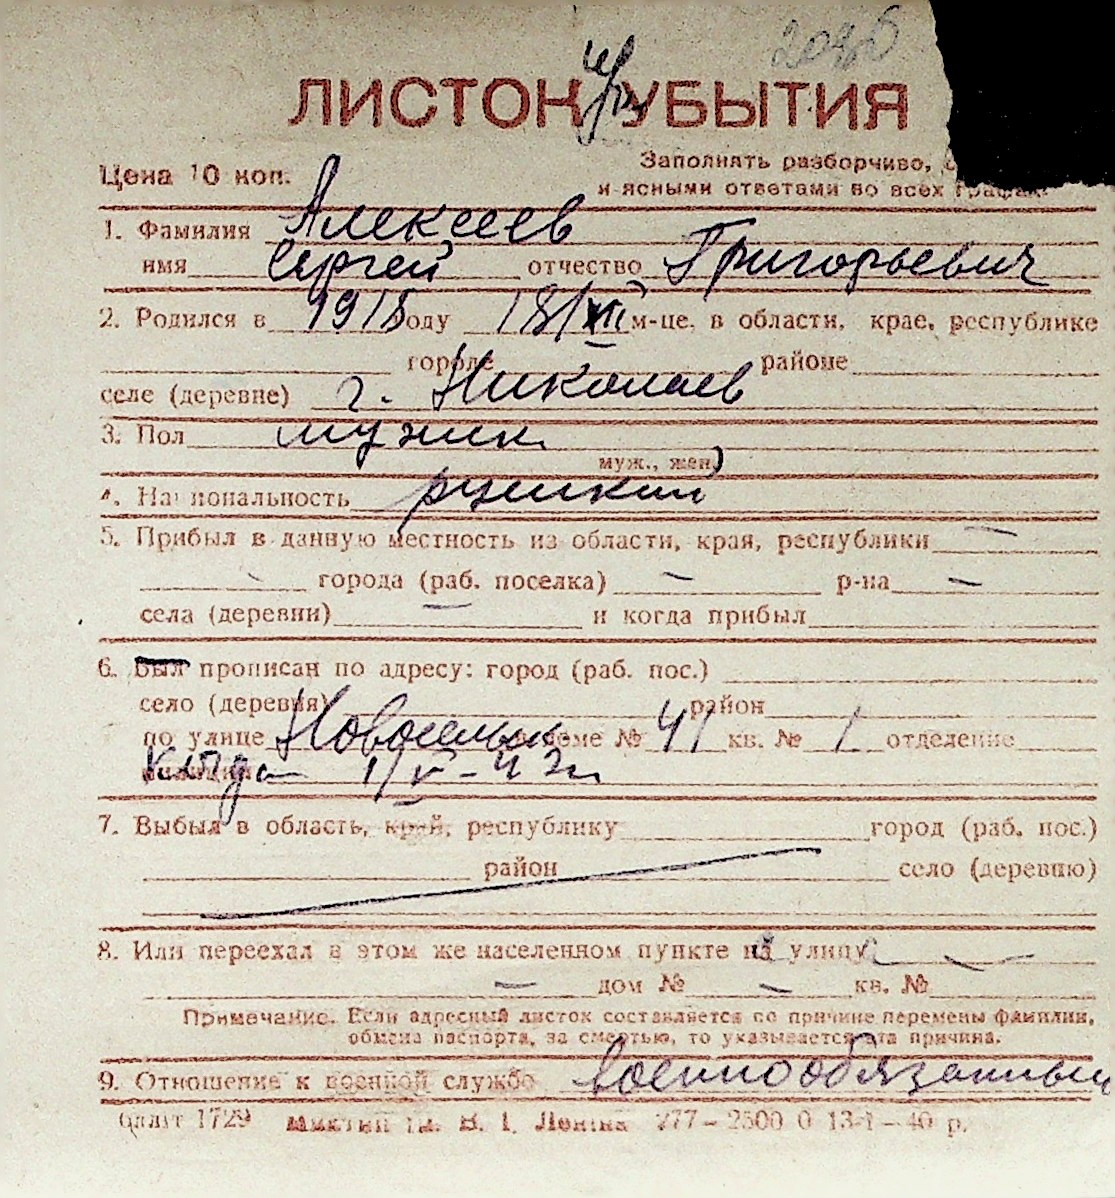 2036
ЛИСТОК УБЫТИЯ
Цена 10 коп.
Заполнять разборчиво,
и ясными ответами во всех графах.
1. Фамилия Алексеев
имя Сергей отчество Григорьевич
2. Родился в 1918 году 18/XII м-це, в области, крае, республике
городе районе
селе (деревне) г. Николаев
3. Пол мужск
муж., жен.
4. Национальность русский
5. Прибыл в данную местность из области, края, республики —
города (раб. поселка) — р-на —
села (деревни) — и когда прибыл
6. Был прописан по адресу: город (раб. пос.)
село (деревня) район
по улице Новосельск доме № 41 кв. № 1 отделение
милиции 1/V-43г
7. Выбыл в область, край, республику город (раб. пос.)
район село (деревню)
8. Или переехал в этом же населенном пункте на улицу —
— дом № — кв. №
Примечание. Если адресный листок составляется по причине перемены фамилии,
обмена паспорта, за смертью, то указывается эта причина.
9. Отношение к военной службе военнообязанный
1729 ім. В. І. Леніна 277 – 2500 0 13-1 – 40 р.